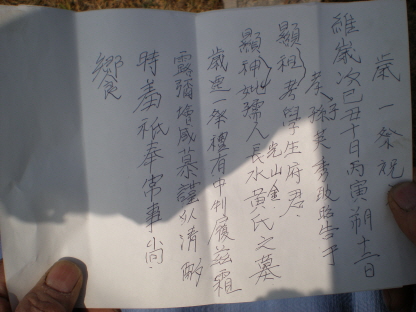 歲一祭祝
維歲次己丑十月丙寅朔十二日
孝子孫英秀敢昭告于
顯祖考學生府君
光山金
顯妣孺人長水黃氏之墓
歲一祭禮有中制履玆霜
露彌增感慕謹以淸酌
時羞祗奉常事尙
饗